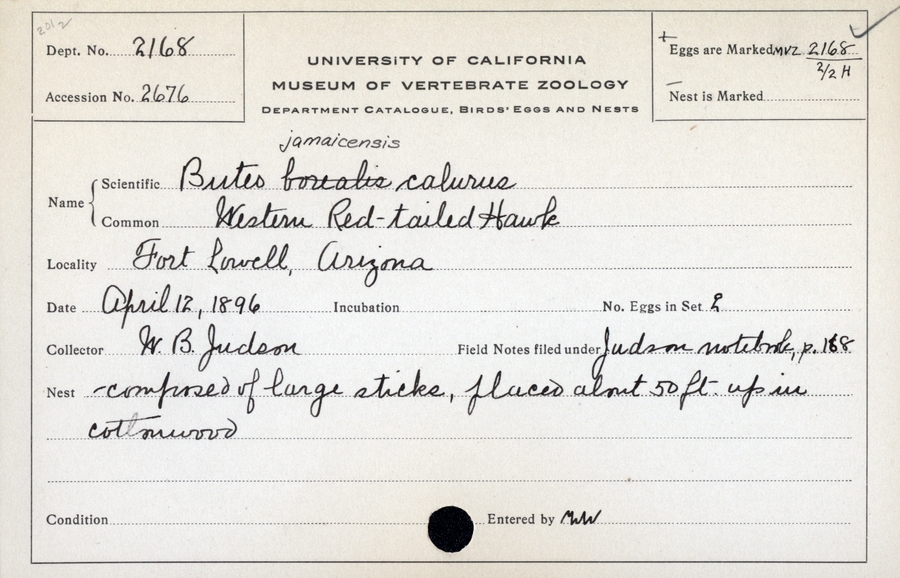 2012
Dept. No. 2168
Accession No. 2676
UNIVERSITY OF CALIFORNIA
MUSEUM OF VERTEBRATE ZOOLOGY
DEPARTMENT CATALOGUE, BIRDS' EGGS AND NESTS
+ Eggs are Marked MVZ 2168
2/2 H
— Nest is Marked
jamaicensis
Name Scientific Buteo borealis calurus
Common Western Red-tailed Hawk
Locality Fort Lowell, Arizona
Date April 12, 1896 Incubation No. Eggs in Set 2
Collector W. B. Judson Field Notes filed under Judson notebook, p. 168
Nest -composed of large sticks, placed about 50 ft. up in
cottonwood
Condition Entered by MW